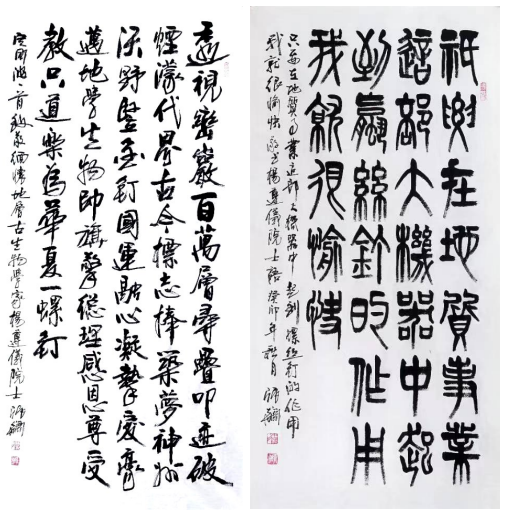 透視巒巖百萬層尋疊叩迹破
煙濛代界古今標志棒築夢神州
沃野豎金釘國運點心凝摯愛
邁地學生物帥旗擎總理感恩尊受
教只道樂為華夏一螺釘
定風波二首敬緬懷地層古生物學家楊遵儀院士
祇要在地質事業
這部大機器中起
到螺絲釘的作用
我就很愉快
只要在地質事業這部大機器中起到螺絲釘的作用
我就很愉快敬書楊遵儀院士語癸卯年秋月